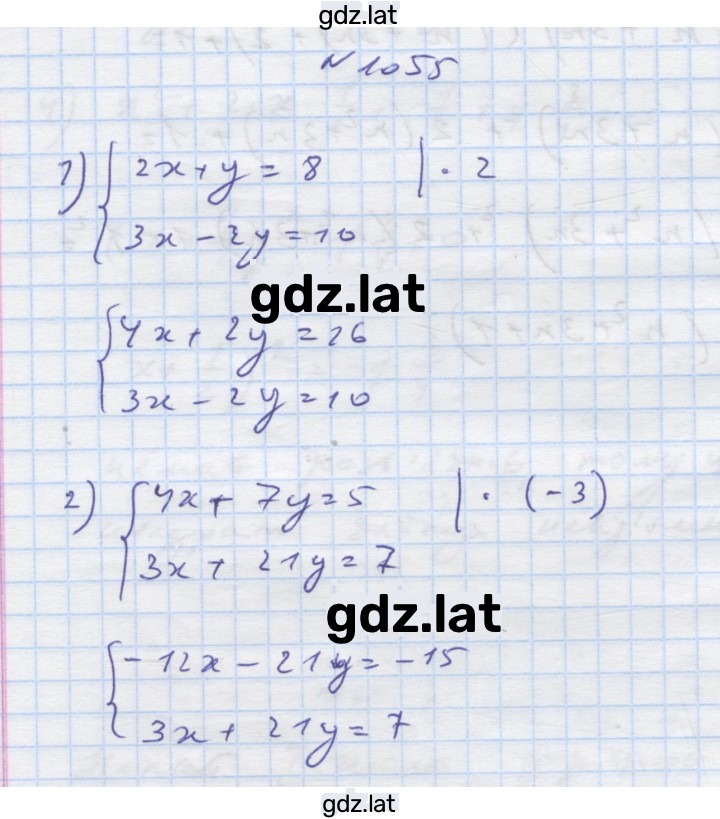 gdz.lat
№ 1055
1) { 2x + y = 8 | · 2
3x - 2y = 10
gdz.lat
{ 4x + 2y = 16
3x - 2y = 10
2) { 4x + 7y = 5 | · (-3)
3x + 21y = 7
gdz.lat
{ -12x - 21y = -15
3x + 21y = 7
gdz.lat